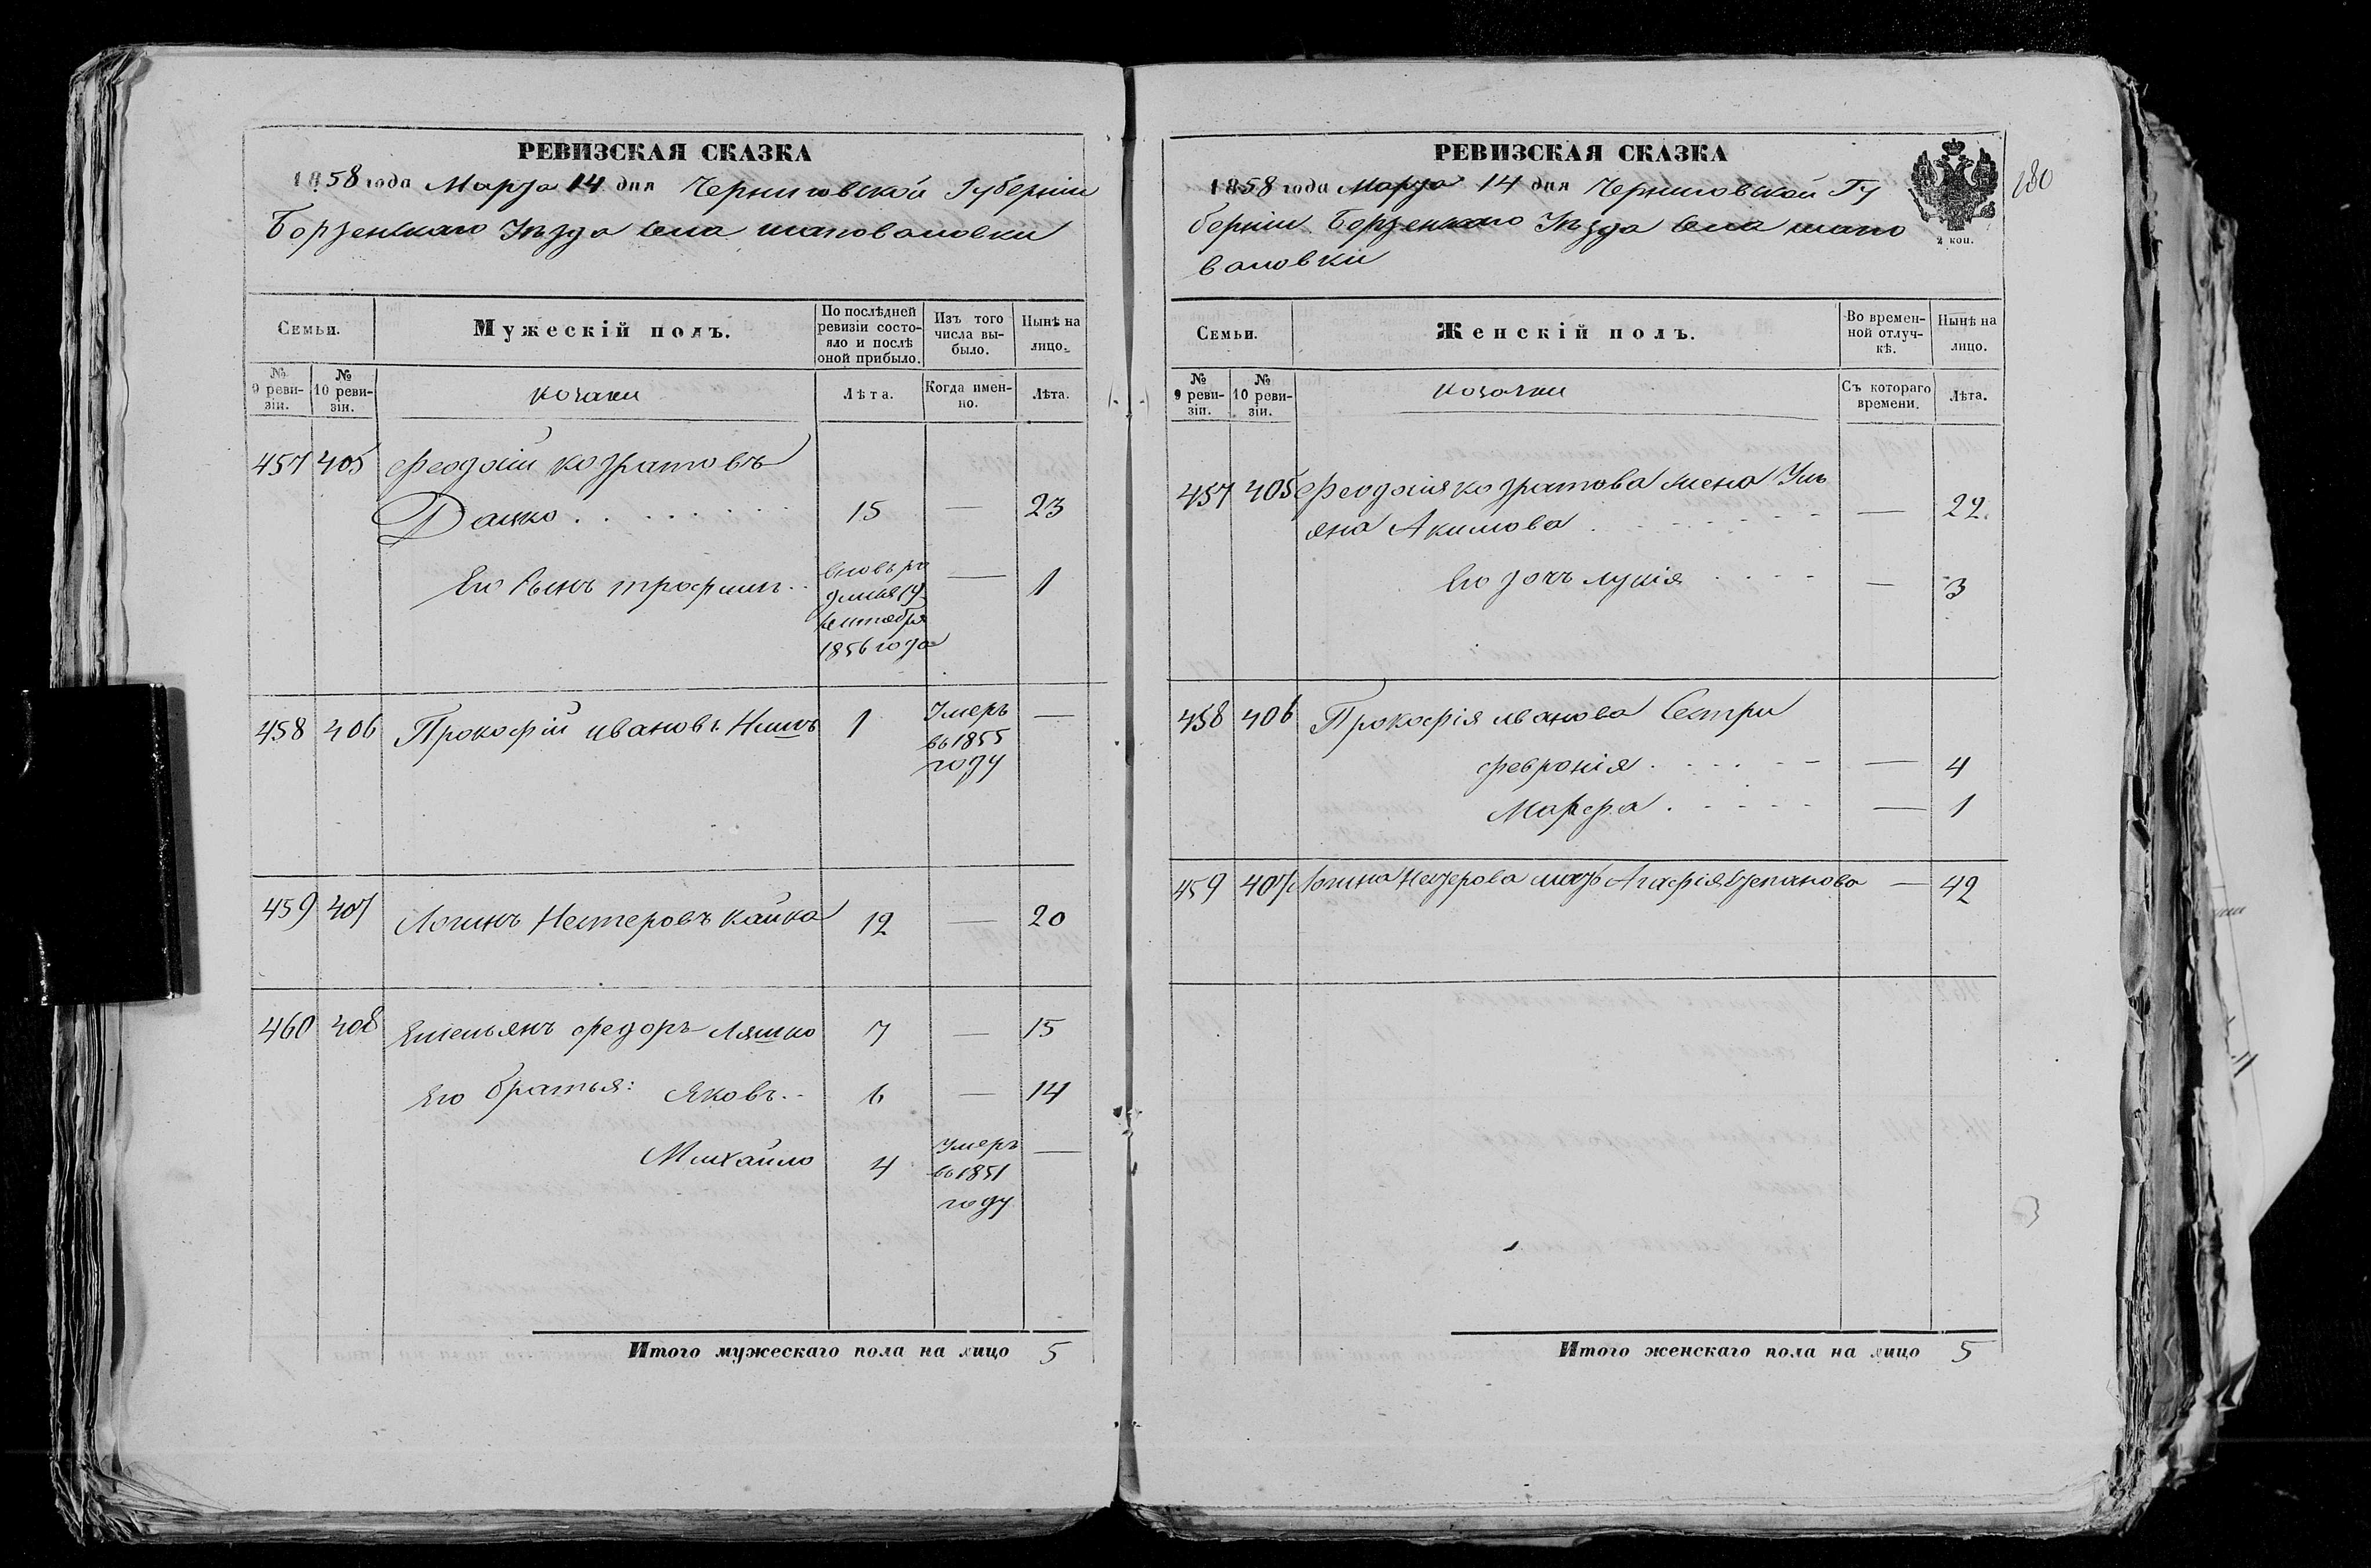 РЕВИЗСКАЯ СКАЗКА
1858 года Марта 14 дня Черниговской Губерніи
Борзенскаго Уѣзда села шаповаловки
Семьи.
Мужескій полъ.
По послѣдней ревизіи состояло и послѣ оной прибыло.
Изъ того числа выбыло.
Нынѣ на лицо.
№ 9 ревизіи.
№ 10 ревизіи.
козаки
Лѣта.
Когда именно.
Лѣта.
457 405 Феодосій кодратовъ
Дацко 15 — 23
Его Сынъ трофимъ вновь ро — 1
сентября
1856 года
458 406 Прокофій ивановъ 1 Умеръ —
въ 1855
году
459 407 Логинъ Нестеровъ кайка 12 — 20
460 408 Емельянъ федоръ Ляшко 7 — 15
Его братья: Яковъ 6 — 14
Михайло 4 Умеръ —
въ 1851
году
Итого мужескаго пола на лицо 5
РЕВИЗСКАЯ СКАЗКА
180
1858 года Марта 14 дня Черниговской Гу
берніи Борзенскаго Уѣзда села шапо
валовки
2 коп.
Семьи.
Женскій полъ.
Во временной отлучкѣ.
Нынѣ на лицо.
№ 9 ревизіи.
№ 10 ревизіи.
козачки
Съ котораго времени.
Лѣта.
457 405 Феодосія кодратова жена Уль
яна Акимова — 22
Его дочь лукія — 3
458 406 Прокофія иванова Сестри
февронія — 4
Марфа — 1
459 407 Логина Нестерова мать Агафія Степанова — 42
Итого женскаго пола на лицо 5